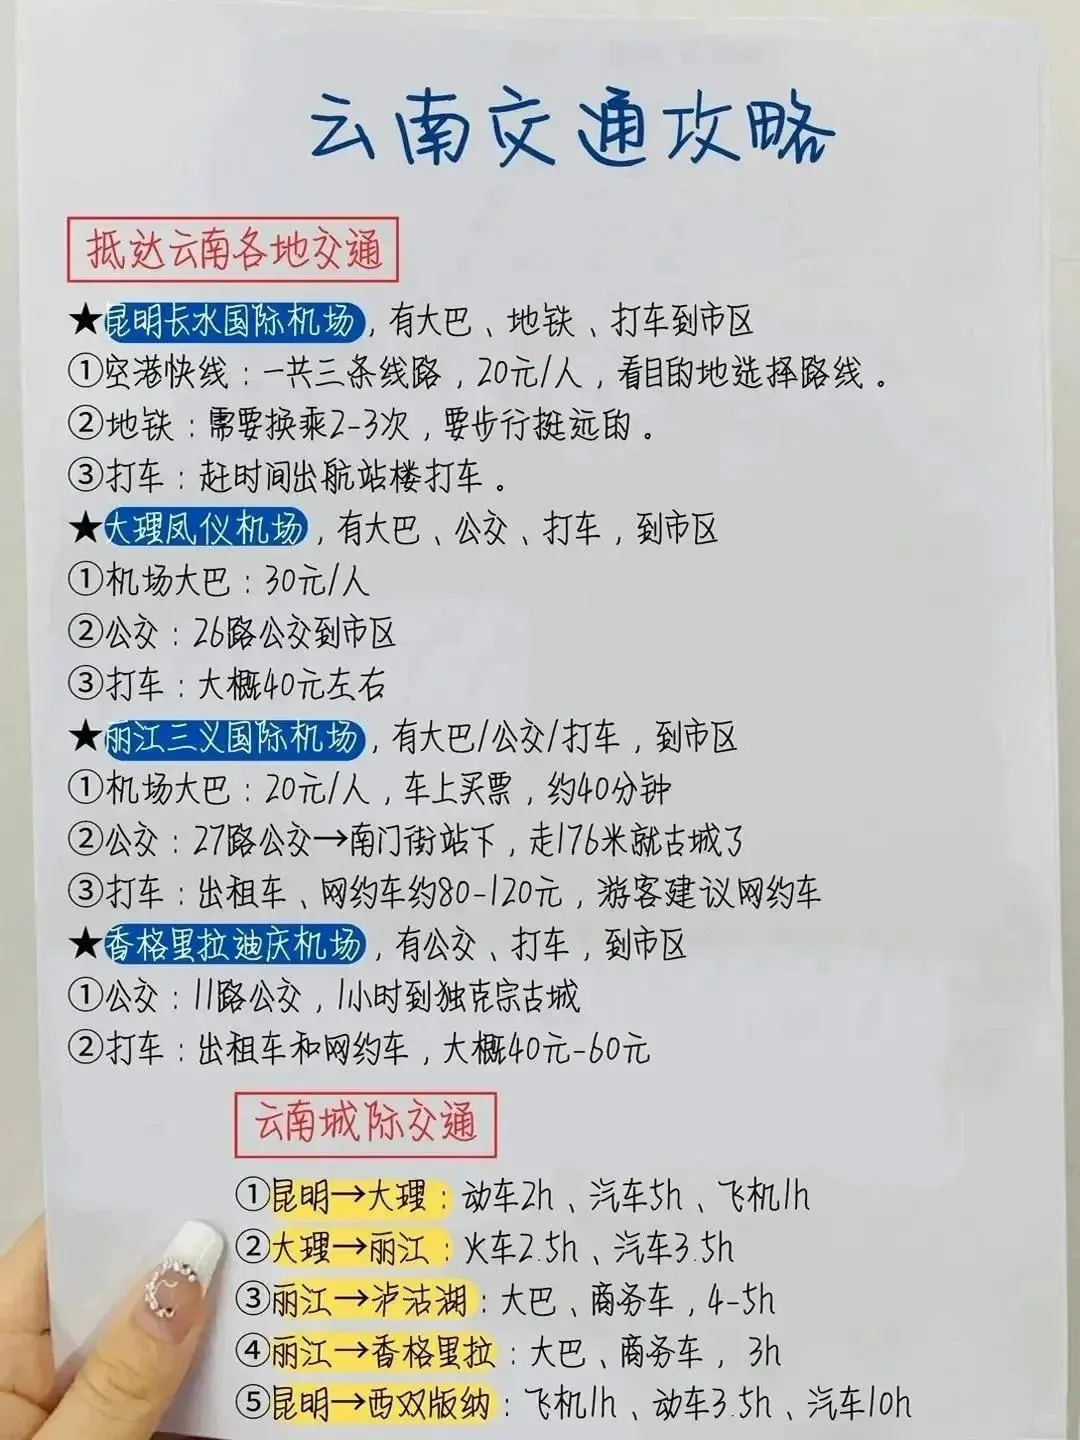 云南交通攻略
抵达云南各地交通
★昆明长水国际机场，有大巴、地铁、打车到市区
①空港快线：一共三条线路，20元/人，看目的地选择路线。
②地铁：需要换乘2-3次，要步行挺远的。
③打车：赶时间出航站楼打车。
★大理凤仪机场，有大巴、公交、打车，到市区
①机场大巴：30元/人
②公交：26路公交到市区
③打车：大概40元左右
★丽江三义国际机场，有大巴/公交/打车，到市区
①机场大巴：20元/人，车上买票，约40分钟
②公交：27路公交→南门街站下，走176米就古城了
③打车：出租车、网约车约80-120元，游客建议网约车
★香格里拉迪庆机场，有公交、打车，到市区
①公交：11路公交，1小时到独克宗古城
②打车：出租车和网约车，大概40元-60元
云南城际交通
①昆明→大理：动车2h、汽车5h、飞机1h
②大理→丽江：火车2.5h、汽车3.5h
③丽江→泸沽湖：大巴、商务车，4-5h
④丽江→香格里拉：大巴、商务车，3h
⑤昆明→西双版纳：飞机1h、动车3.5h、汽车10h